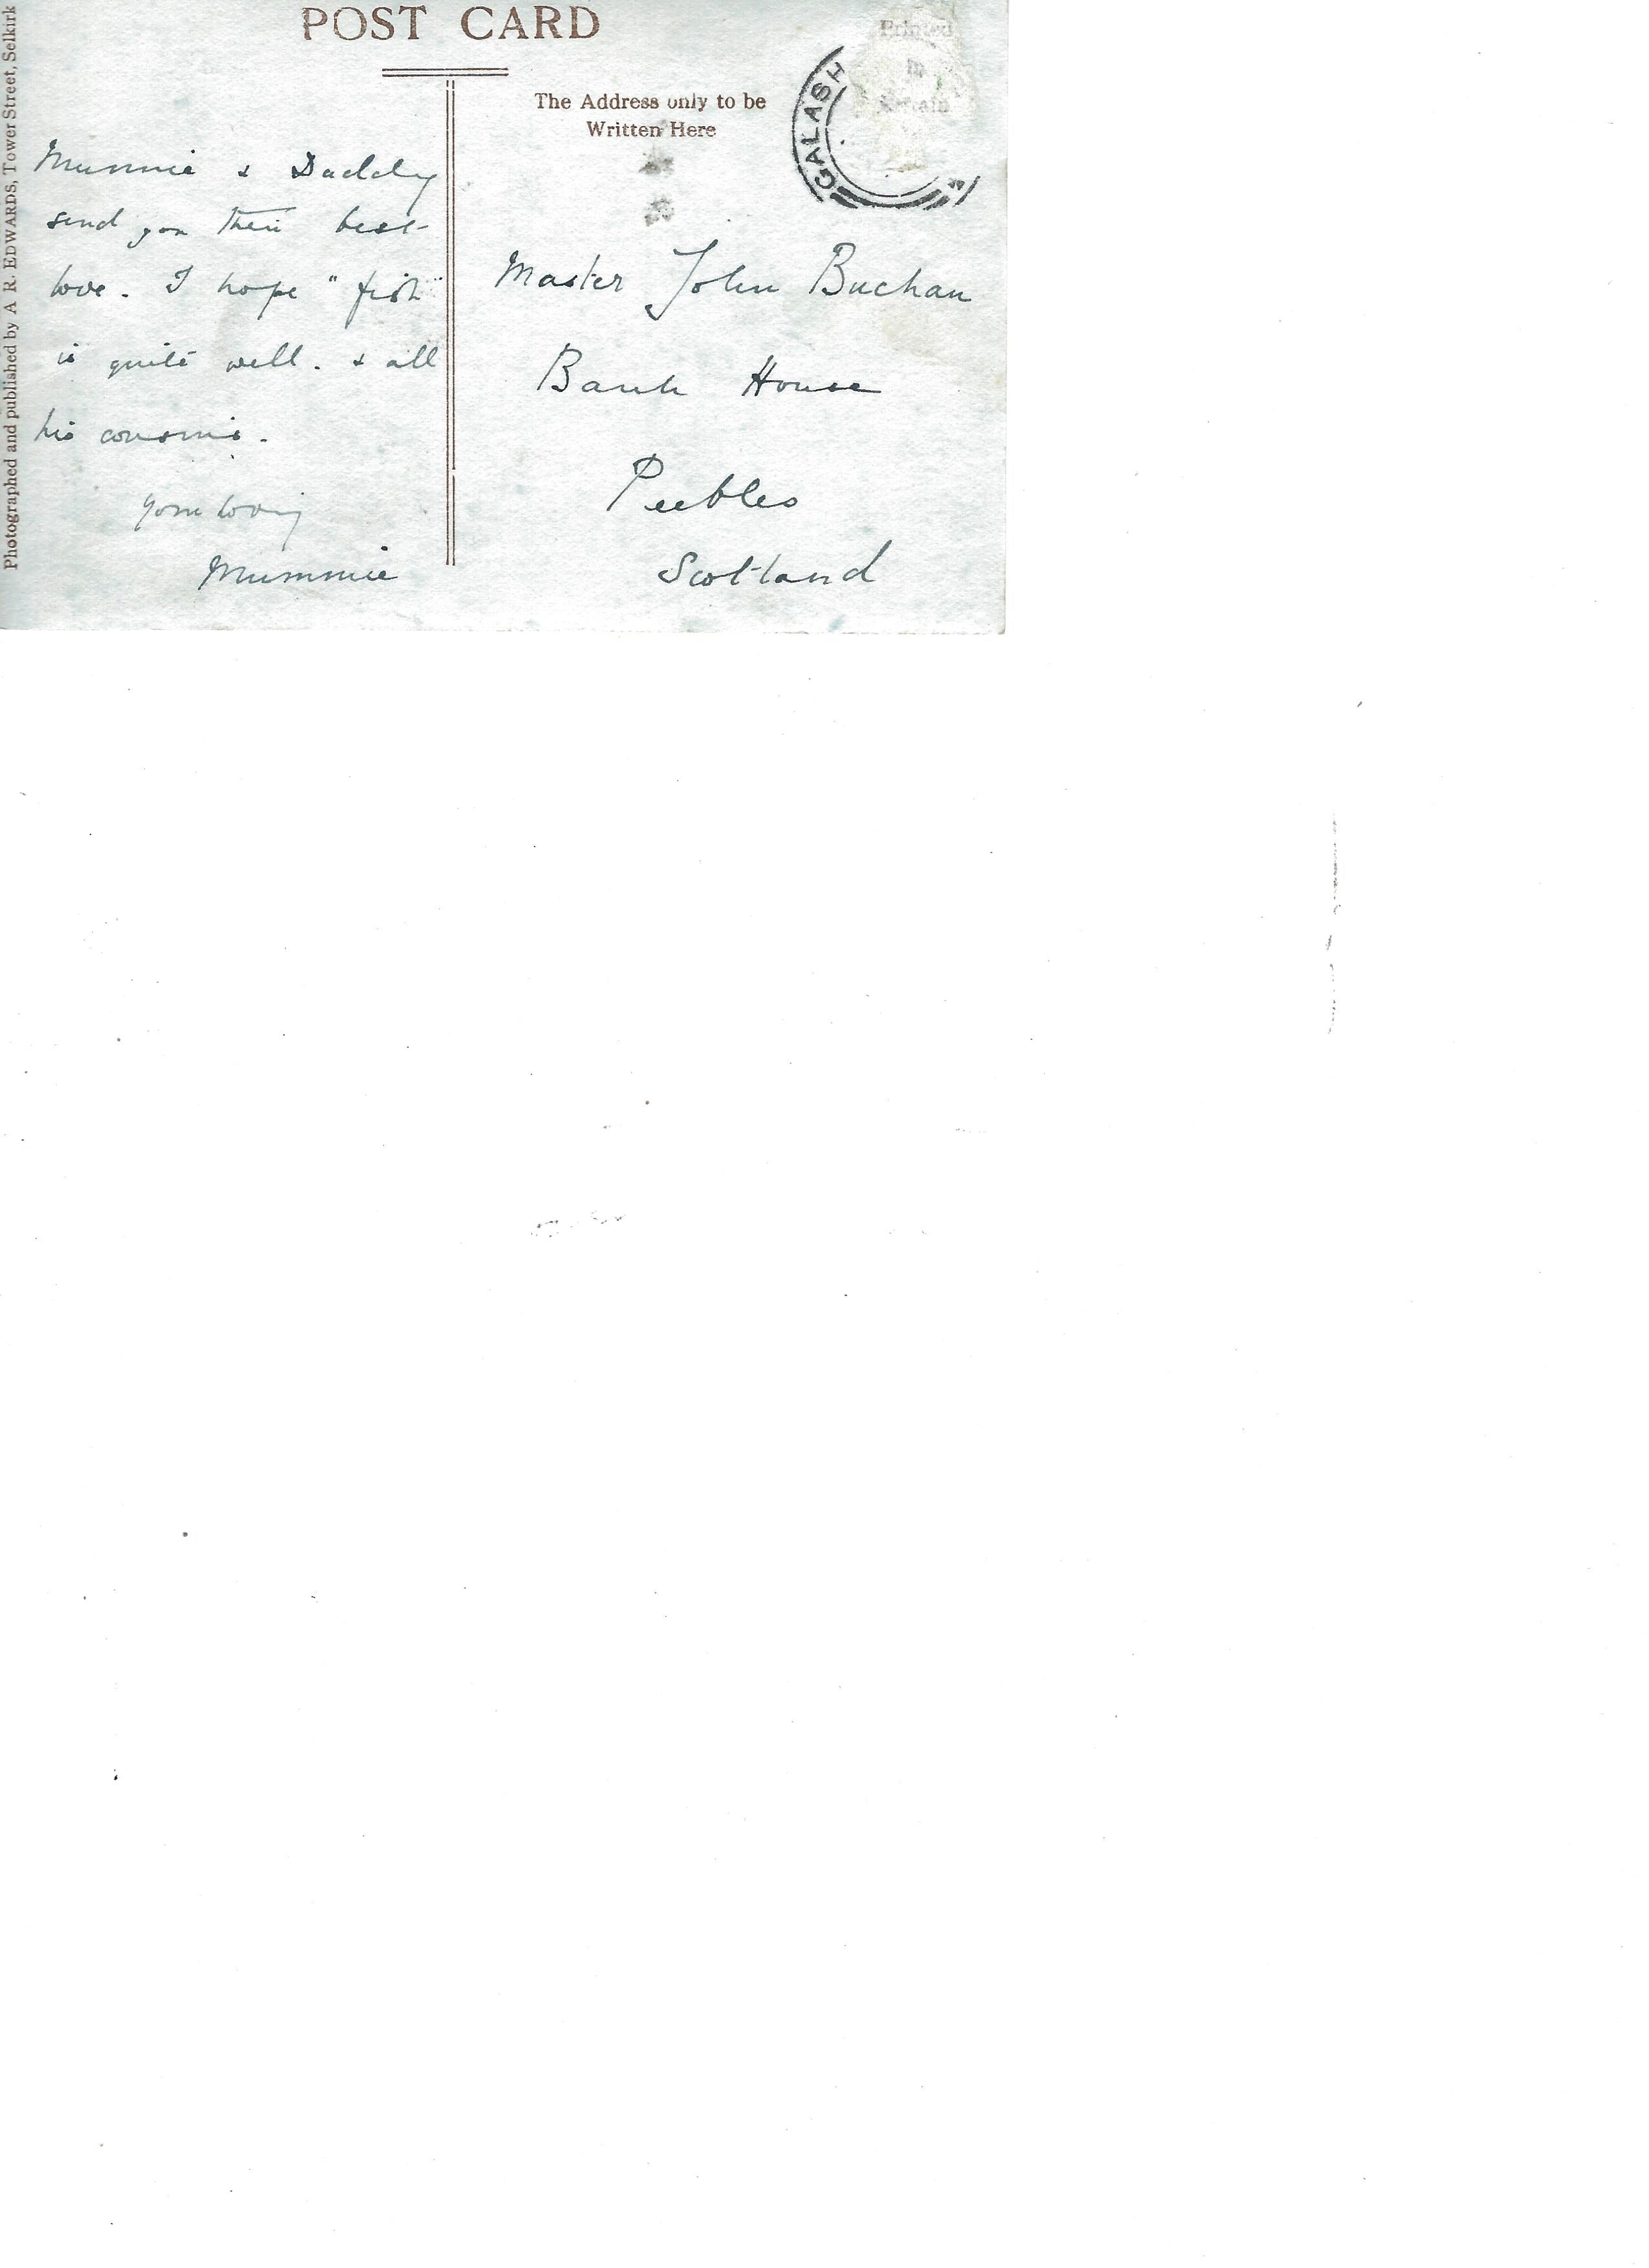 POST CARD
Printed
in
Britain
The Address only to be
Written Here
GALASH
Photographed and published by A. R. EDWARDS, Tower Street, Selkirk
Mummie & Daddy
send you their best
love. I hope "fish"
is quite well. & all
his cousins.
Your loving
Mummie
Master John Buchan
Bank House
Peebles
Scotland